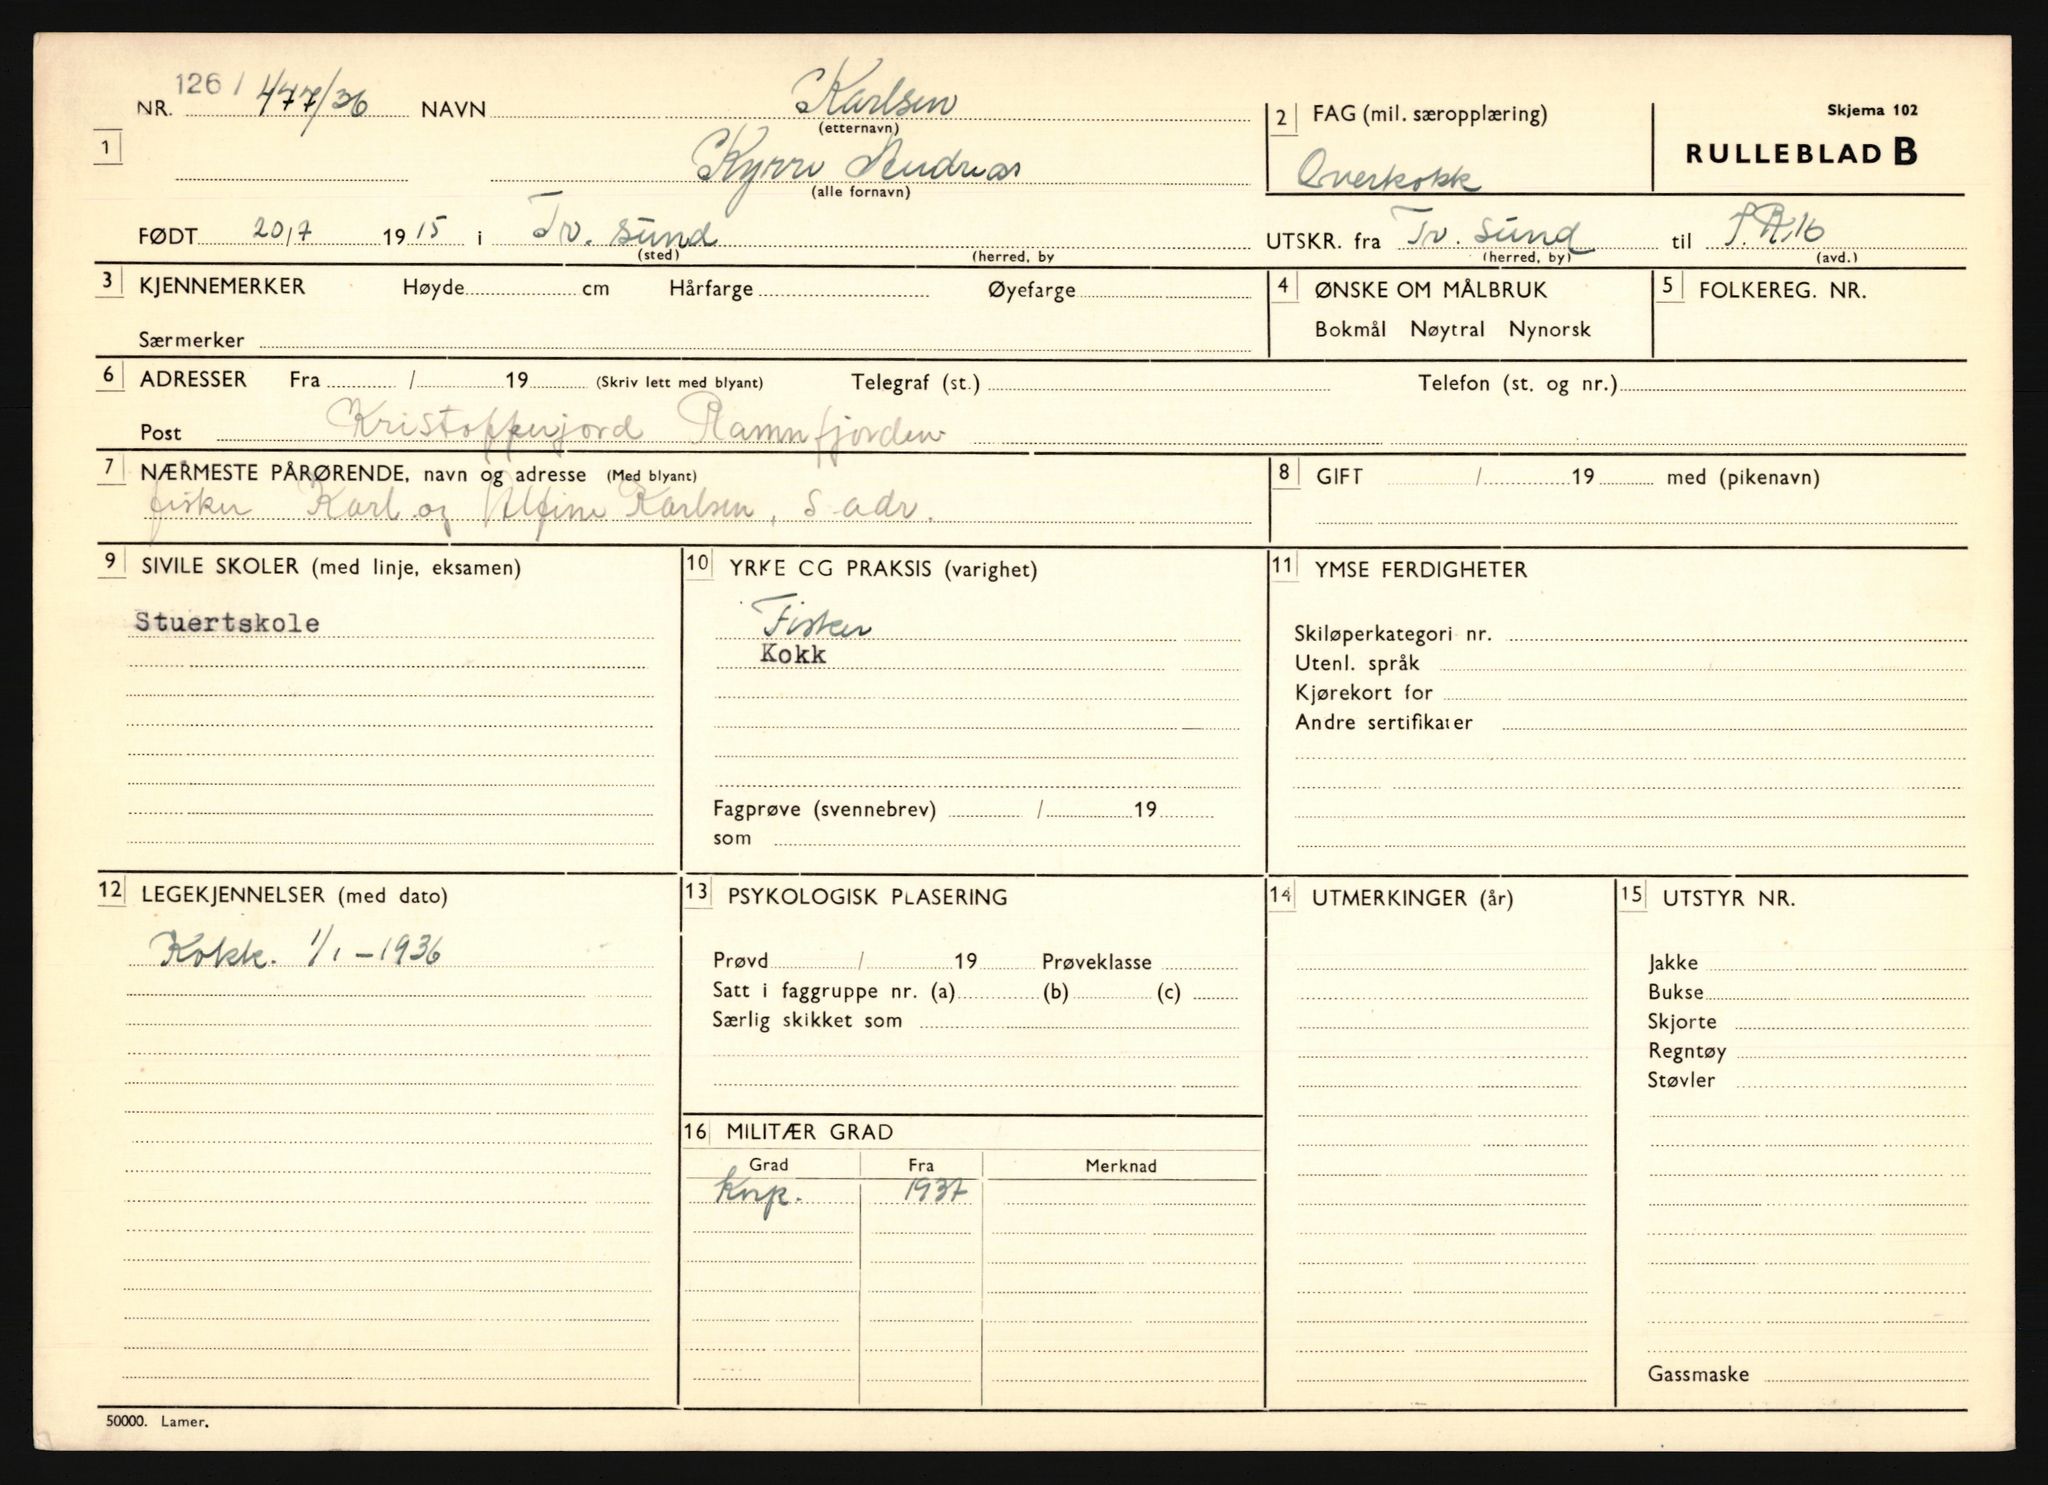 126 / 477/36
NR. NAVN Karlsen
(etternavn)
1
Kyrre Andreas
(alle fornavn)
2 FAG (mil. særopplæring)
Overkokk
Skjema 102
RULLEBLAD B
FØDT 20/7 1915 i Tr. sund
(sted) (herred, by
UTSKR. fra Tr. sund til I.R.16
(herred, by) (avd.)
3 KJENNEMERKER Høyde cm Hårfarge Øyefarge
Særmerker
4 ØNSKE OM MÅLBRUK
Bokmål Nøytral Nynorsk
5 FOLKEREG. NR.
6 ADRESSER Fra / 19 (Skriv lett med blyant) Telegraf (st.) Telefon (st. og nr.)
Post Kristoffenjord Ramnfjorden
7 NÆRMESTE PÅRØRENDE, navn og adresse (Med blyant)
fisker Karl og Alfine Karlsen, s adr.
8 GIFT / 19 med (pikenavn)
9 SIVILE SKOLER (med linje, eksamen)
Stuertskole
10 YRKE CG PRAKSIS (varighet)
Fisker
Kokk
Fagprøve (svennebrev) / 19
som
11 YMSE FERDIGHETER
Skiløperkategori nr.
Utenl. språk
Kjørekort for
Andre sertifikater
12 LEGEKJENNELSER (med dato)
Kokk. 1/1 - 1936
13 PSYKOLOGISK PLASERING
Prøvd / 19 Prøveklasse
Satt i faggruppe nr. (a) (b) (c)
Særlig skikket som
14 UTMERKINGER (år)
15 UTSTYR NR.
Jakke
Bukse
Skjorte
Regntøy
Støvler
Gassmaske
16 MILITÆR GRAD
Grad Fra Merknad
Korp. 1937
50000. Lamer.